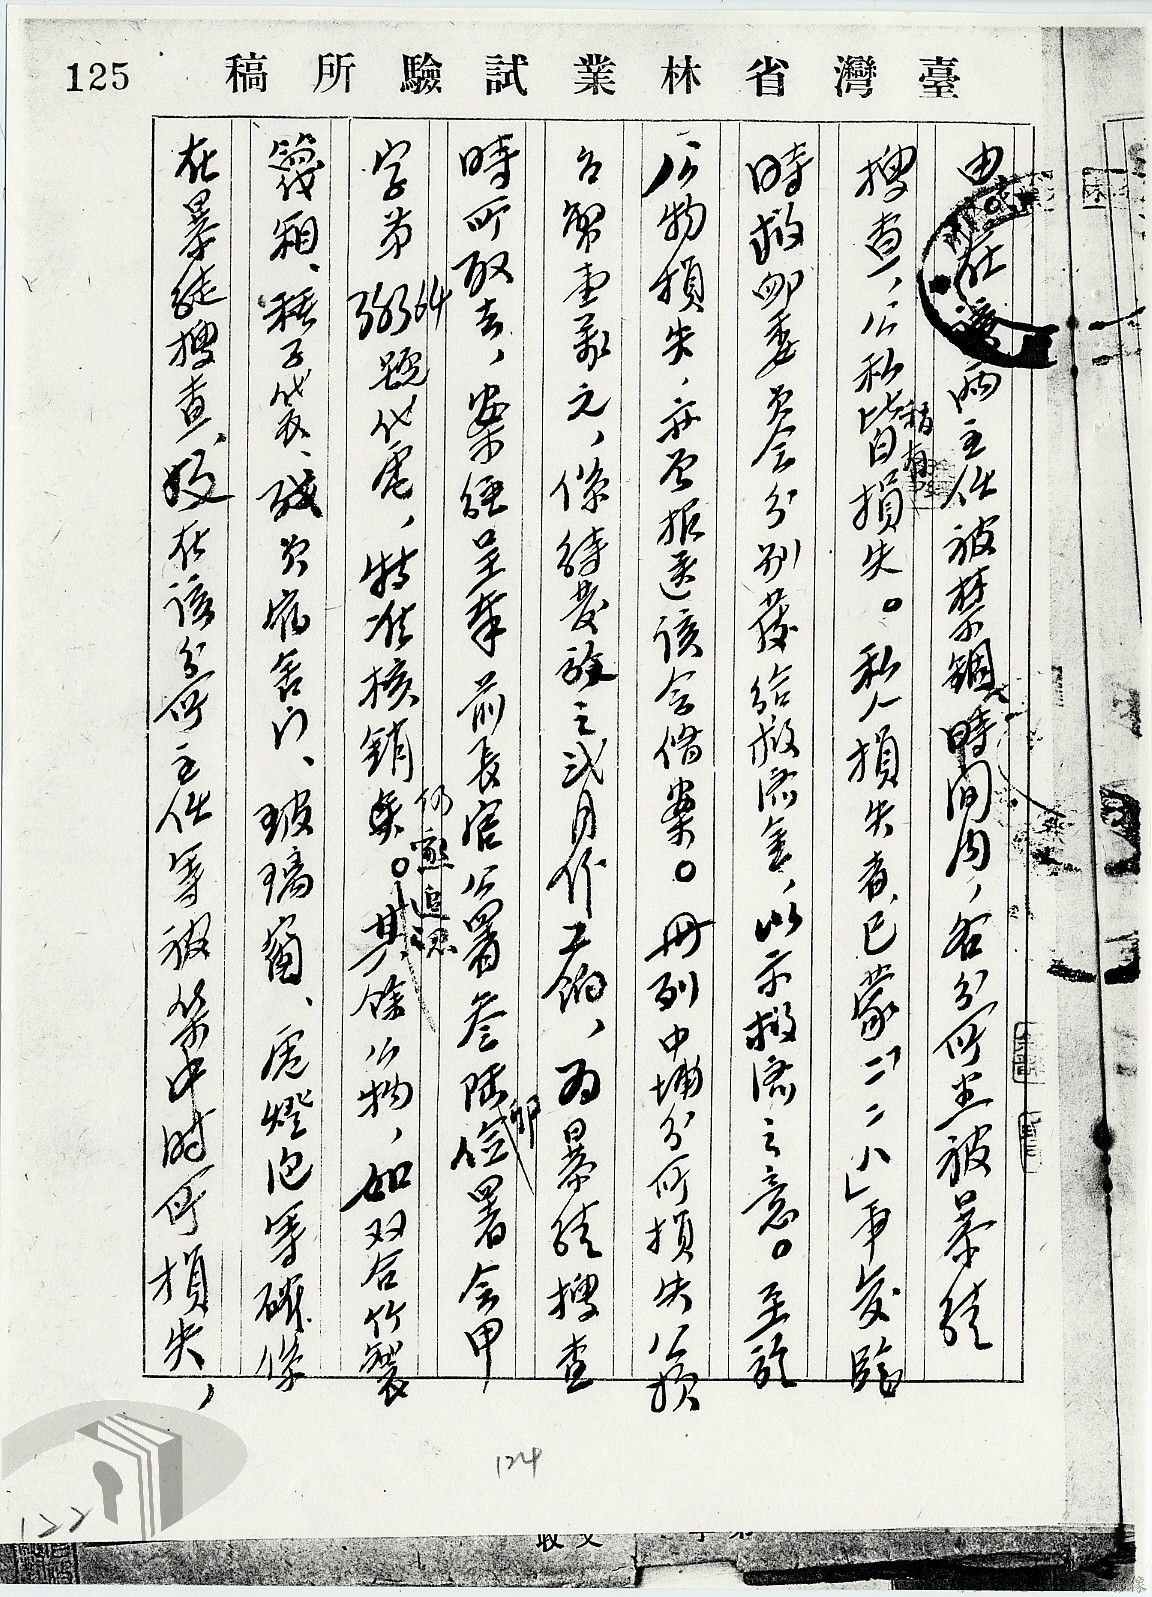 125
臺灣省林業試驗所稿
由 在該兩主任被禁錮時間內，各分所並被暴徒
搜查，公私皆稍有損失。私人損失者，已蒙「二二八」事變臨
時救卹委員會分別發給救濟金，以示救濟之意。至於
公物損失，亦曾報送該會備案。冊列中埔分所損失公款
台幣壹萬元，係待發放之弍月份工餉，為暴徒搜查
時所取去，案經呈奉前長官公署叁陆 卯 署會甲
字第 64 號代電，特准核銷矣。仍懇追認 其餘公物，如双合竹製
箱、種子袋、 宿舍門、玻璃窗、電燈泡等確係
在暴徒搜查，及在該分所主任等被禁中時所損失，
124
122